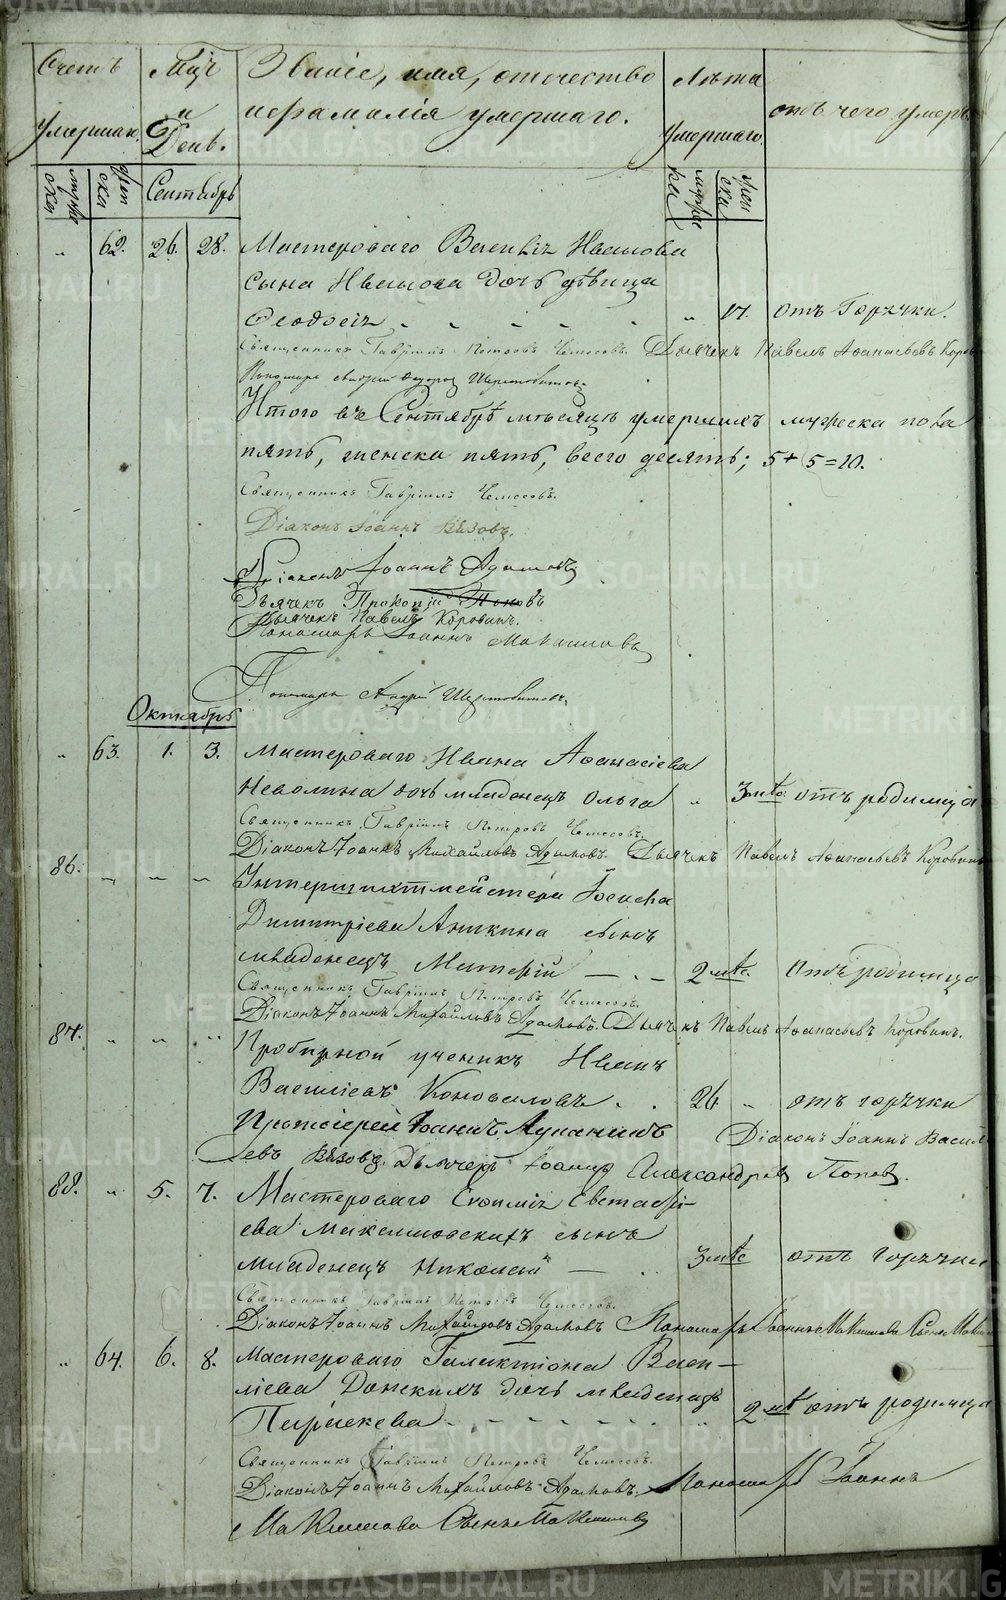 METRIKI.GASO-URAL.RU
Счетъ умершихъ.
Мцъ и День.
Званіе, имя, отчество
и фамилія умершаго.
Лѣта умершаго.
отъ чего умеръ
мужеска
женска
Сентябрь
мужеска
женска
„ 62. 26. 28. Мастероваго Василія Иванова
сына Иванова дочь дѣвица
Феодосія - - - - - „ 17. отъ Горячки.
Священникъ Гавріилъ Петровъ Чемесовъ. Дьячекъ Павелъ Афанасьевъ Коров
Пономарь Андрей Шерстобитовъ
Итого въ Сентябрѣ мѣсяцѣ умершихъ мужеска пола
пять, женска пять, всего десять; 5+5=10.
Священникъ Гавріилъ Чемесовъ.
Діаконъ Іоаннъ Вязовъ.
Діаконъ Іоаннъ Адамовъ
Дьячекъ Прокопій Поповъ
Дьячекъ Павелъ Коровинъ.
Пономарь Іоаннъ Макшиловъ
Пономарь Андрей Шерстобитовъ
Октябрь
„ 63. 1. 3. Мастероваго Ивана Афанасіева
Неволина дочь младенецъ Ольга „ 3 мѣс. отъ родимца
Священникъ Гавріилъ Петровъ Чемесовъ.
Діаконъ Іоаннъ Михайловъ Адамовъ. Дьячекъ Павелъ Афанасьевъ Коровинъ
86. „ „ „ Унтершихтмейстера Іосифа
Димитріева Аникина сынъ
младенецъ - - 2 мѣс. Отъ родимца
Священникъ Гавріилъ Петровъ Чемесовъ.
Діаконъ Іоаннъ Михайловъ Адамовъ. Дьячекъ Павелъ Афанасьевъ Коровинъ.
87. „ „ „ Пробирной ученикъ Иванъ
Василіевъ Коноваловъ . . 26 „ отъ горячки
Протоіерей Іоаннъ Діаконъ Іоаннъ Васил
евъ Вязовъ. Дьячекъ Іоаннъ Александровъ Поповъ.
88. „ 5. 7. Мастероваго
сынъ
младенецъ Николай - 3 мѣс отъ горячки
Священникъ Гавріилъ Петровъ Чемесовъ.
Діаконъ Іоаннъ Михайловъ Адамовъ Пономарь Іоаннъ
„ 64. 6. 8. Мастероваго Галактіона Васи-
ліева Донскихъ дочь младенецъ
Параскева - - - - „ 2 мѣ отъ родимца
Священникъ Гавріилъ Петровъ Чемесовъ.
Діаконъ Іоаннъ Михайловъ Адамовъ. Пономарь Іоаннъ